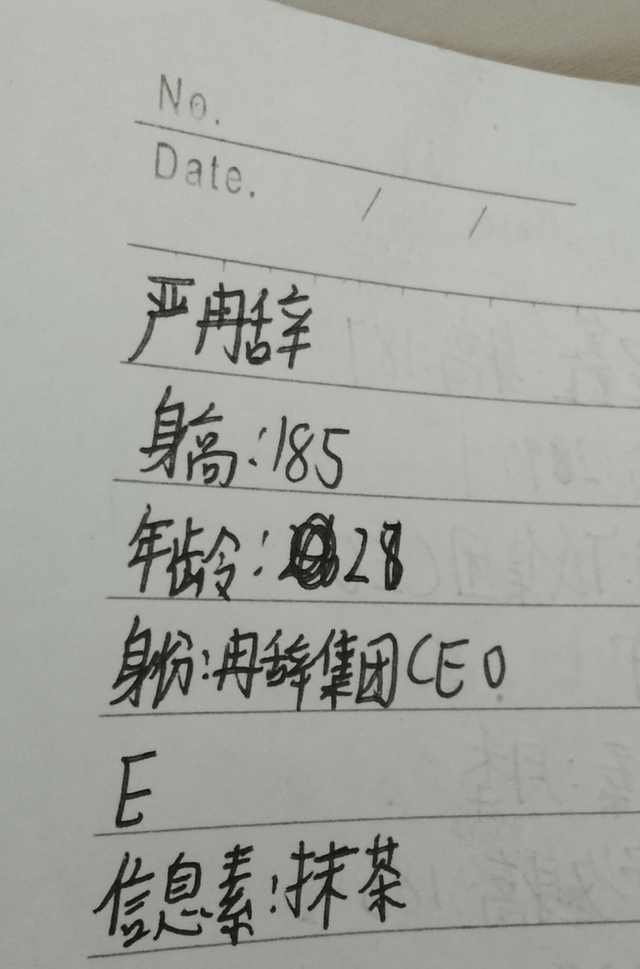 No.
Date. / /
严冉辞
身高:185
年龄:28
身份:冉辞集团CEO
E
信息素:抹茶